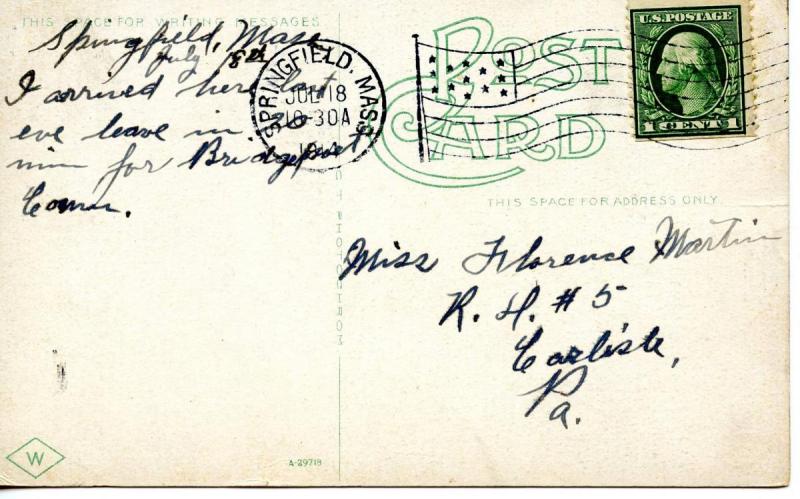 THIS SPACE FOR WRITING MESSAGES
Springfield, Mass
July 18th
I arrived here last
eve leave in 20
min for Bridgeport
Conn.
SPRINGFIELD, MASS.
JUL 18
10-30A
POST
CARD
U.S. POSTAGE
1 CENT 1
THIS SPACE FOR ADDRESS ONLY.
Miss Florence Martin
R. D. #5
Carlisle,
Pa.
W
A-29718